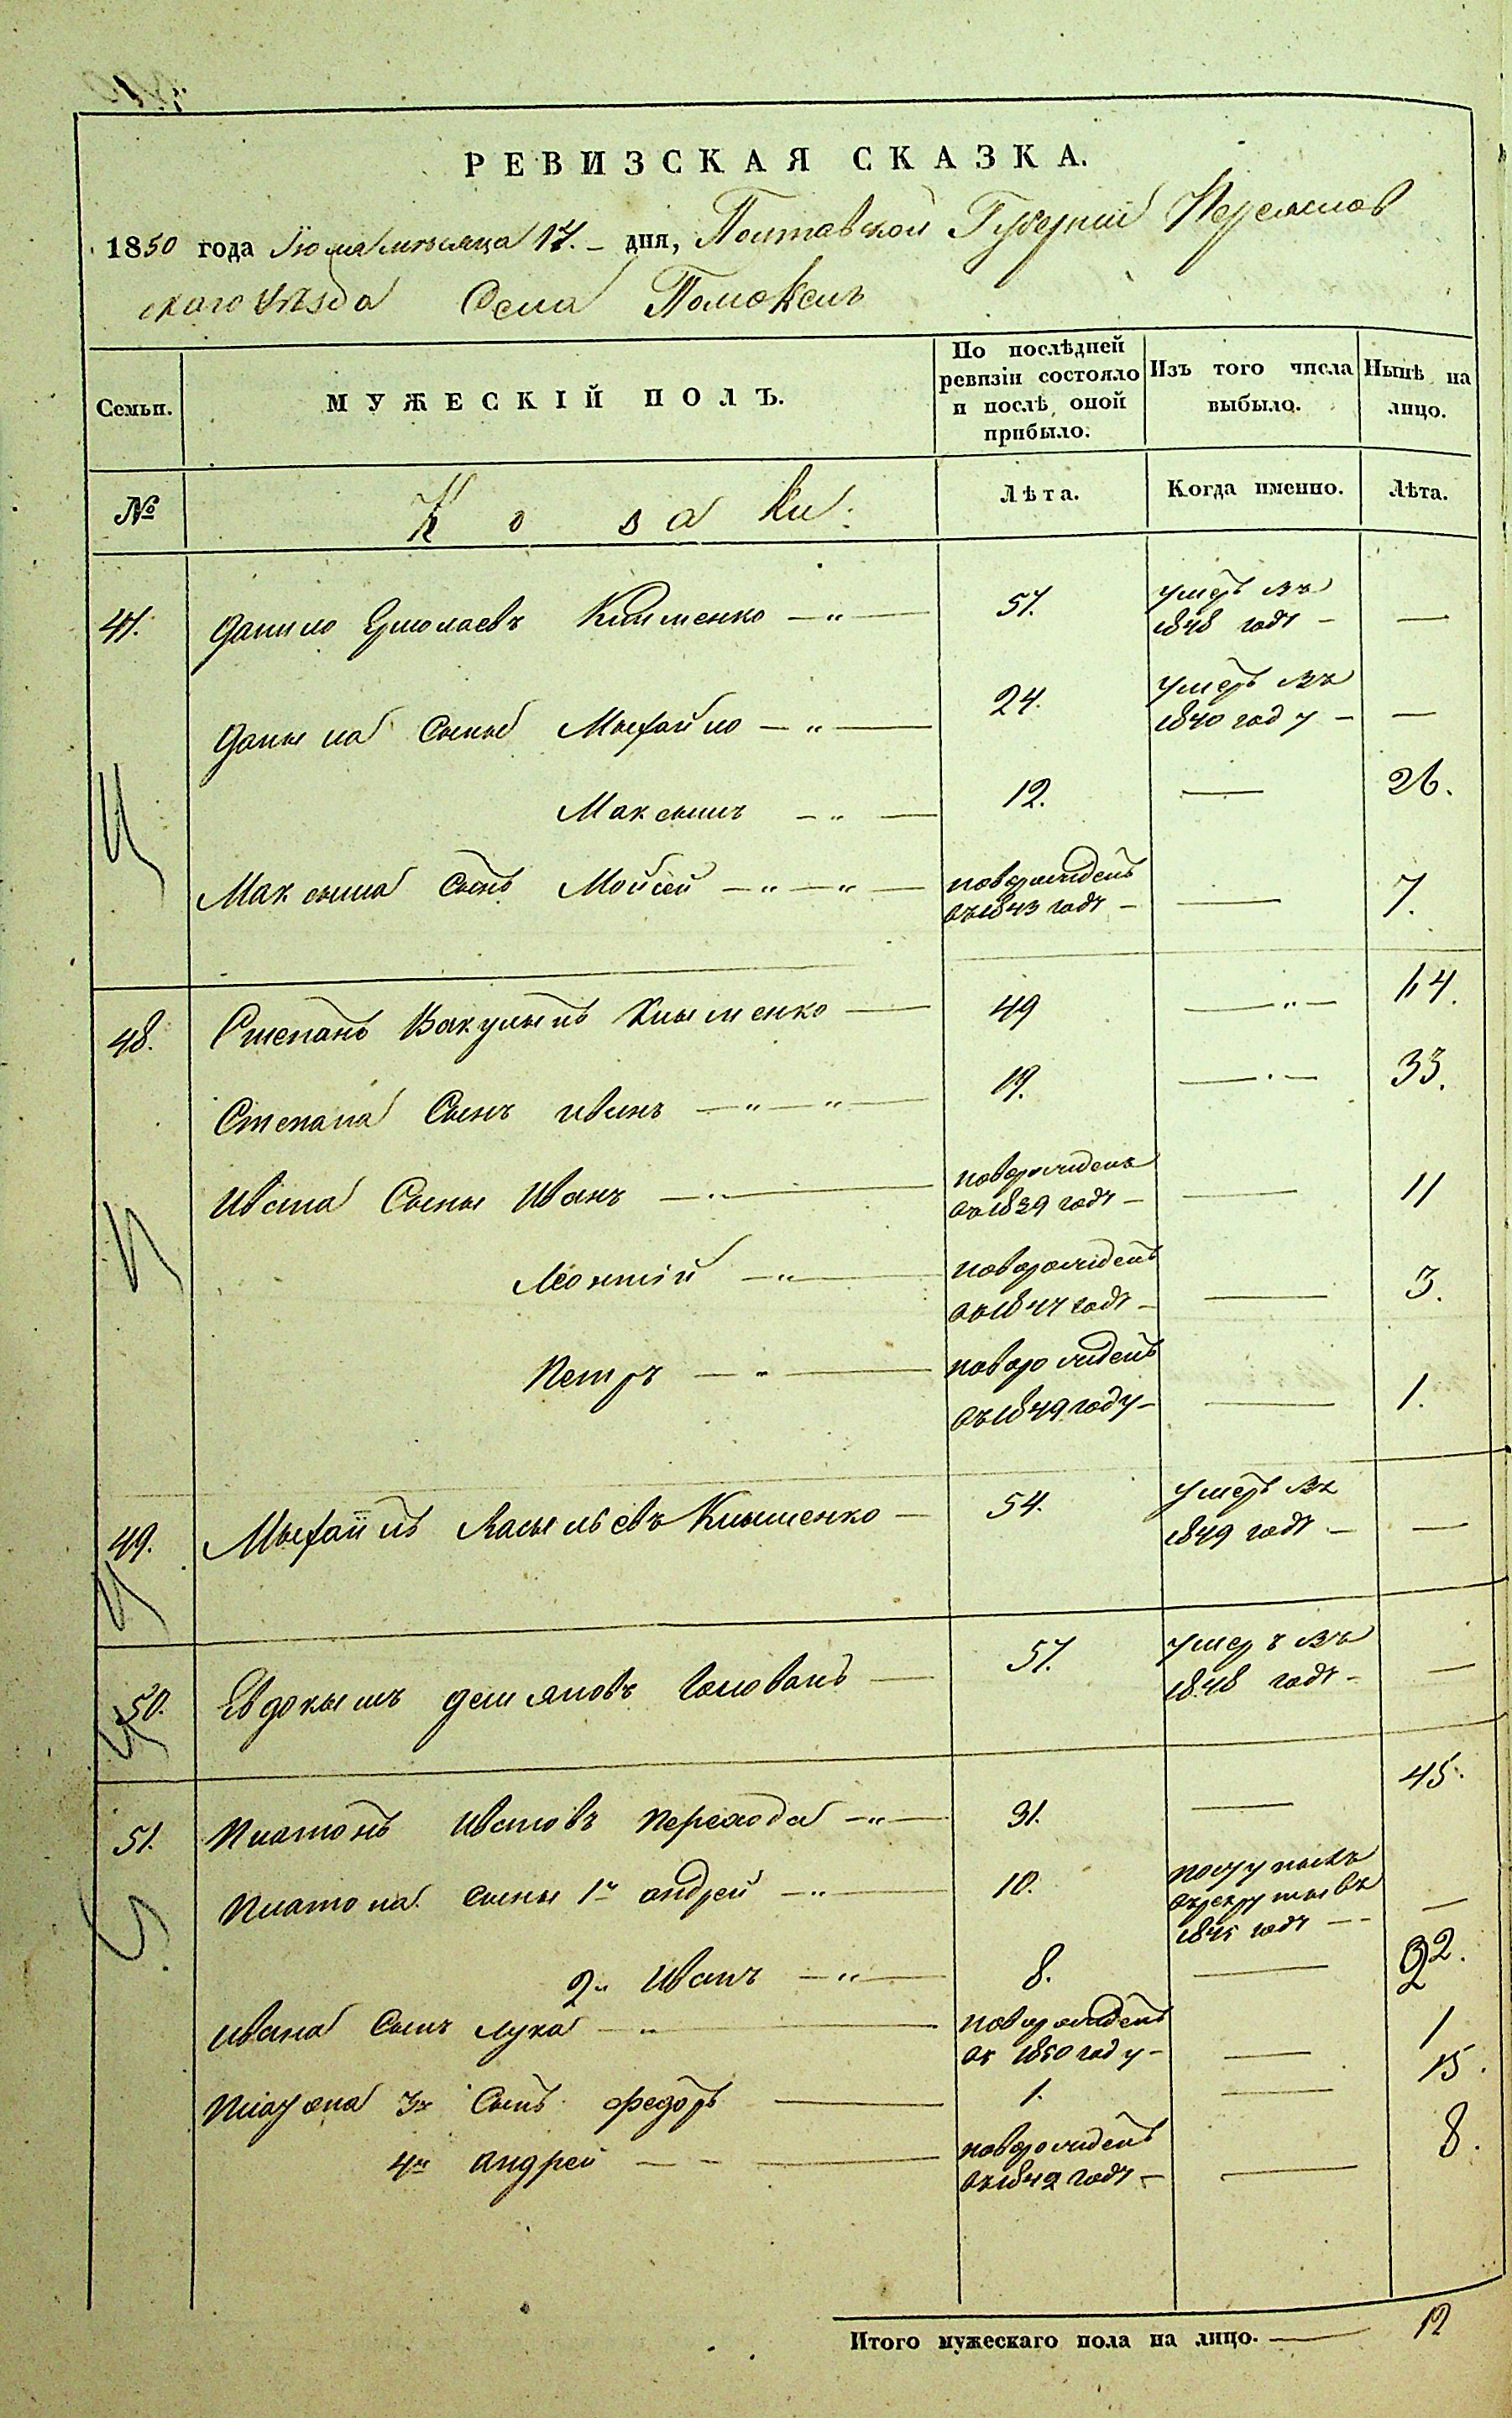 РЕВИЗСКАЯ СКАЗКА.
1850 года Июля месяца 17. – дня, Полтавской Губернии Переяслов
скаго Уезда Села Помоклъ
Семьи.
МУЖЕСКІЙ ПОЛЪ.
По послѣдней ревизіи состояло и послѣ оной прибыло.
Изъ того числа выбыло.
Нынѣ на лицо.
№
Козаки.
Лѣта.
Когда именно.
Лѣта.
47. Данило Ермолаевъ Клименко — „ — 57. умеръ въ 1848 годУ — —
Данила Сыны Мыхайло — „ — 24. умеръ въ 1840 году — —
Максымъ — „ — 12. — 26.
Максыма Сынъ Мойсей — „ — „ — новорожденъ въ 1843 году — — 7.
48. Степанъ Вакулынъ Клыменко — 49 — „ — 64.
Степана Сынъ иванъ — „ — „ — 19. — 33.
Ивана Сыны Иванъ — „ — новорожденъ въ 1839 году — — 11
Леонтій — „ — новорожденъ въ 1847 году — — 3.
Петръ — „ — новорожденъ въ 1849 году — — 1.
49. Мыхаилъ Васыльевъ Клыменко — 54. умеръ въ 1849 году — —
50. Евдокымъ демяновъ Голованъ — 57. умеръ въ 1848 году — —
51. Платонъ Ивановъ Перехода — „ — 31. — 45.
Платона сыны 1й андрей — „ — 10. поступылъ въ рекруты въ 1845 году — —
2й Иванъ — „ — 8. — 22.
ивана сынъ лука — „ — новорожденъ въ 1850 году — — 1
Платона 3й Сынъ федоръ — 1. — 15.
4й андрей — — новорожденъ въ 1842 году — — 8.
Итого мужескаго пола на лицо. — 12